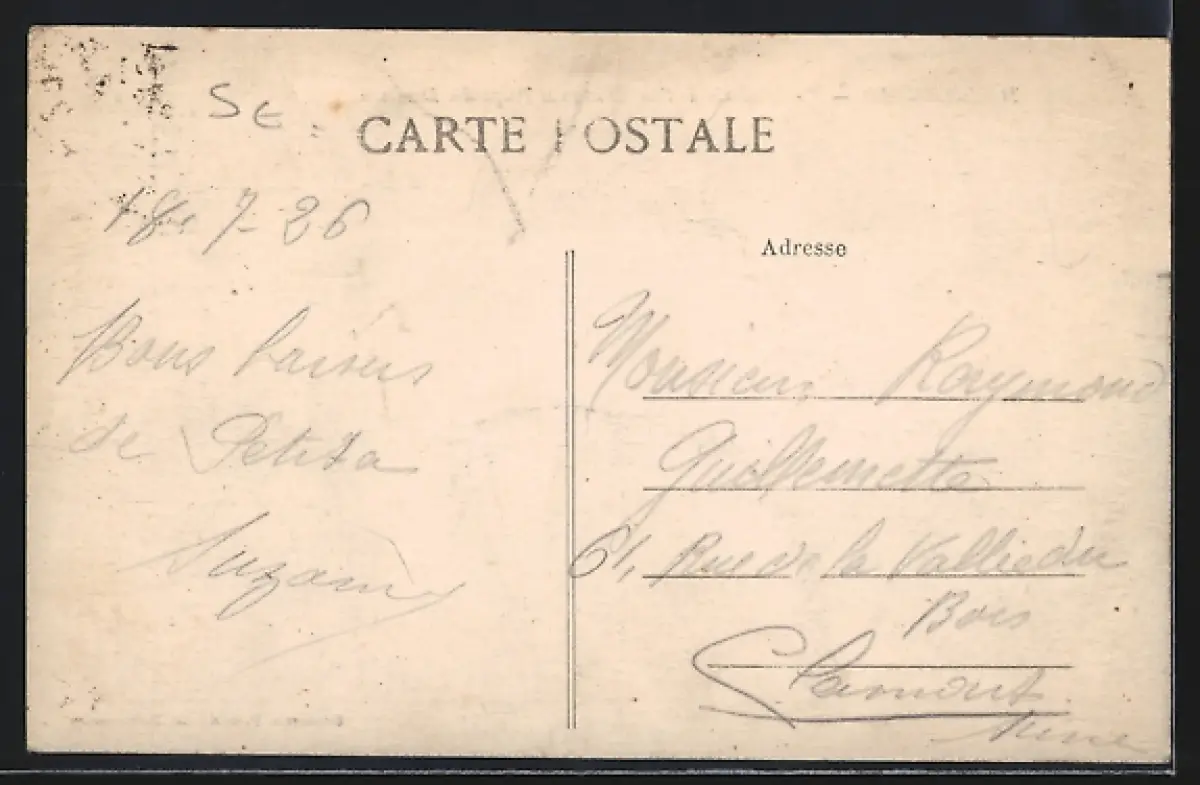 SE
CARTE POSTALE
18-7-26
Adresse
Bons baisers
de Petita
Suzanne
Monsieur Raymond
Guillemette
61, Rue de la Vallée du
Bois
Clamart
Seine